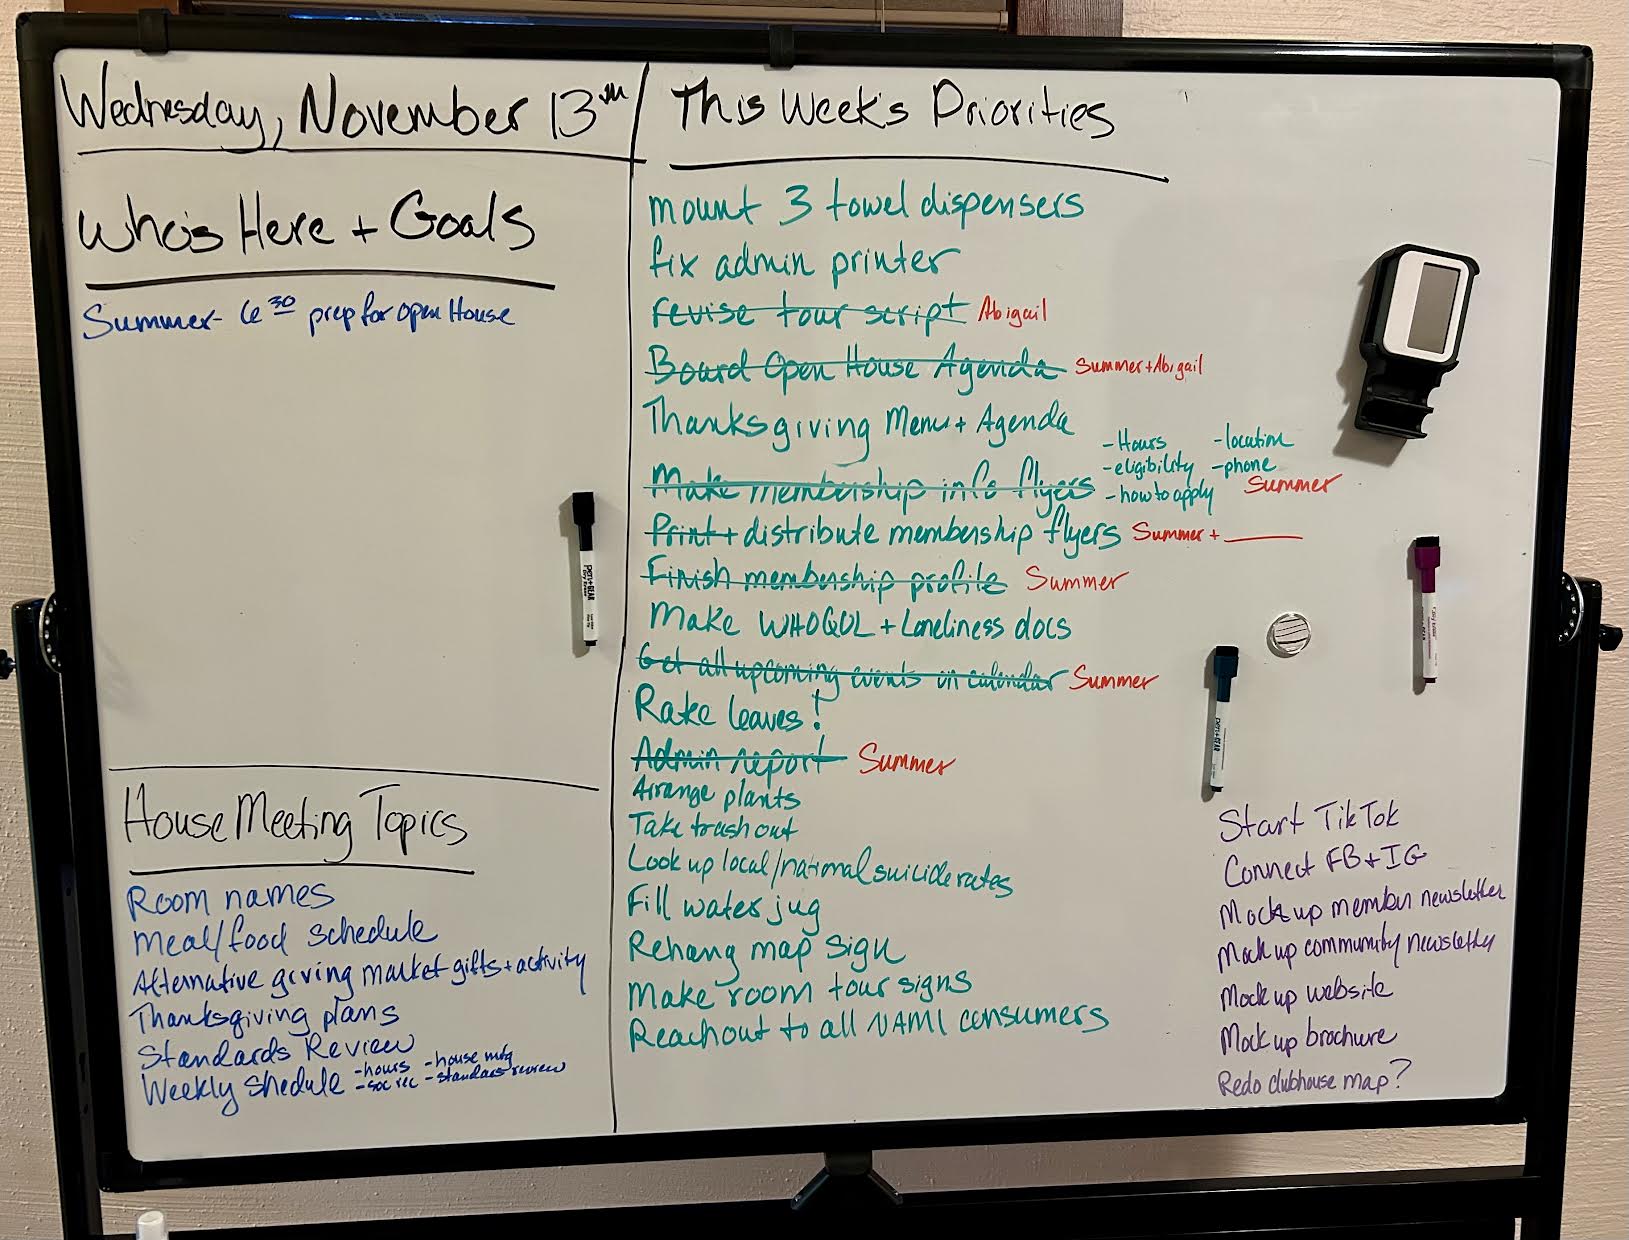 Wednesday, November 13th
Who's Here + Goals
Summer- 6 30 prep for open House
House Meeting Topics
Room names
Meal/food schedule
Alternative giving market gifts + activity
Thanksgiving plans
Standards Review
Weekly Shedule -hours -house mtg
-soc rec -standars review
This Week's Priorities
mount 3 towel dispensers
fix admin printer
revise tour script Abigail
Board Open House Agenda Summer + Abigail
Thanksgiving Menu + Agenda
-Hours -location
-eligibility -phone
-how to apply
Make membership info flyers Summer
Print + distribute membership flyers Summer + ______
Finish membership profile Summer
Make WHOQOL + Loneliness docs
Get all upcoming events on calendar Summer
Rake leaves!
Admin report Summer
Arrange plants
Take trash out
Look up local/national suicide rates
Fill water jug
Rehang map sign
Make room tour signs
Reach out to all NAMI consumers
Start TikTok
Connect FB + IG
Mock up member newsletter
Mock up community newsletter
Mock up website
Mock up brochure
Redo clubhouse map?